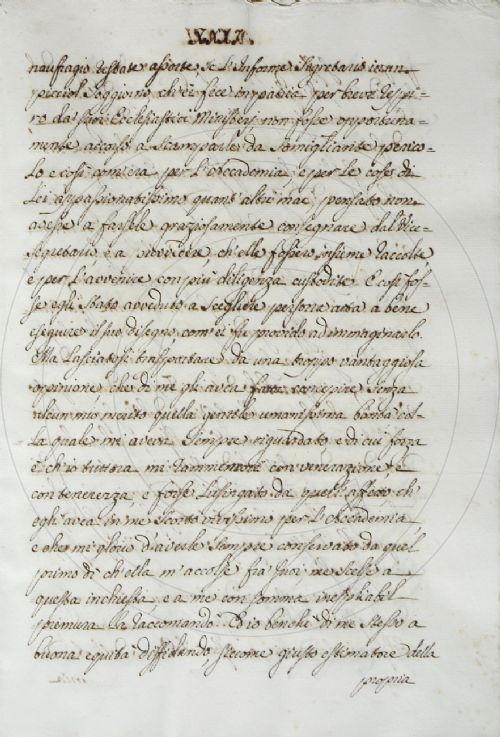 naufragio restate assorte, se l'Informe Segretario in un
picciol Soggiorno, ch'ei fece in padria per breve respi-
ro da' suoi Ecclesiastici Ministerj non fosse opportuna-
mente accorso a Scamparle da Somigliante perico-
lo e così com'era per l'Accademia, e per le cose di
Lei appassionatissimo quant'altri mai, pensato non
avesse a farsele graziosamente consegnare dal Vice-
Segretario, e a provvedere ch'elle fossero insieme raccolte
e per l'avvenire con più diligenza custodite. E così fos-
se egli stato avveduto a Scegliere persona atta a bene
eseguire il suo disegno com'ei fu provido ad immaginarlo.
Ma lasciatosi trasportare da una troppo vantaggiosa
opinione, che di me gli avea fatta concepire Senza
alcun mio merito quella gentile umanissima bontà col-
la quale mi aveva Sempre riguardato, e di cui forza
è ch'io tuttora mi rammemori con venerazione, e
con tenerezza, e forse lusingato da quell'affetto, ch'
egli avea in me Scorto vivissimo per l'Accademia
e che mi glorio d'averle Sempre conservato da quel
primo dì ch'ella m'accolse fra' suoi, me Scelse a
questa inchiesta e a me con Somma inesplicabil
premura la raccomandò. Ed io benchè di me Stesso a
buona equità diffidando, siccome giusto estimatore della
propria